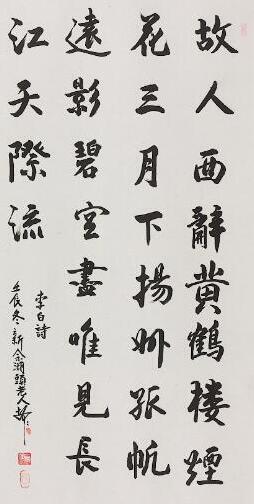 故人西辭黄鶴楼煙
花三月下揚州孤帆
遠影碧空盡唯見長
江天際流
李白詩
壬辰冬新老人